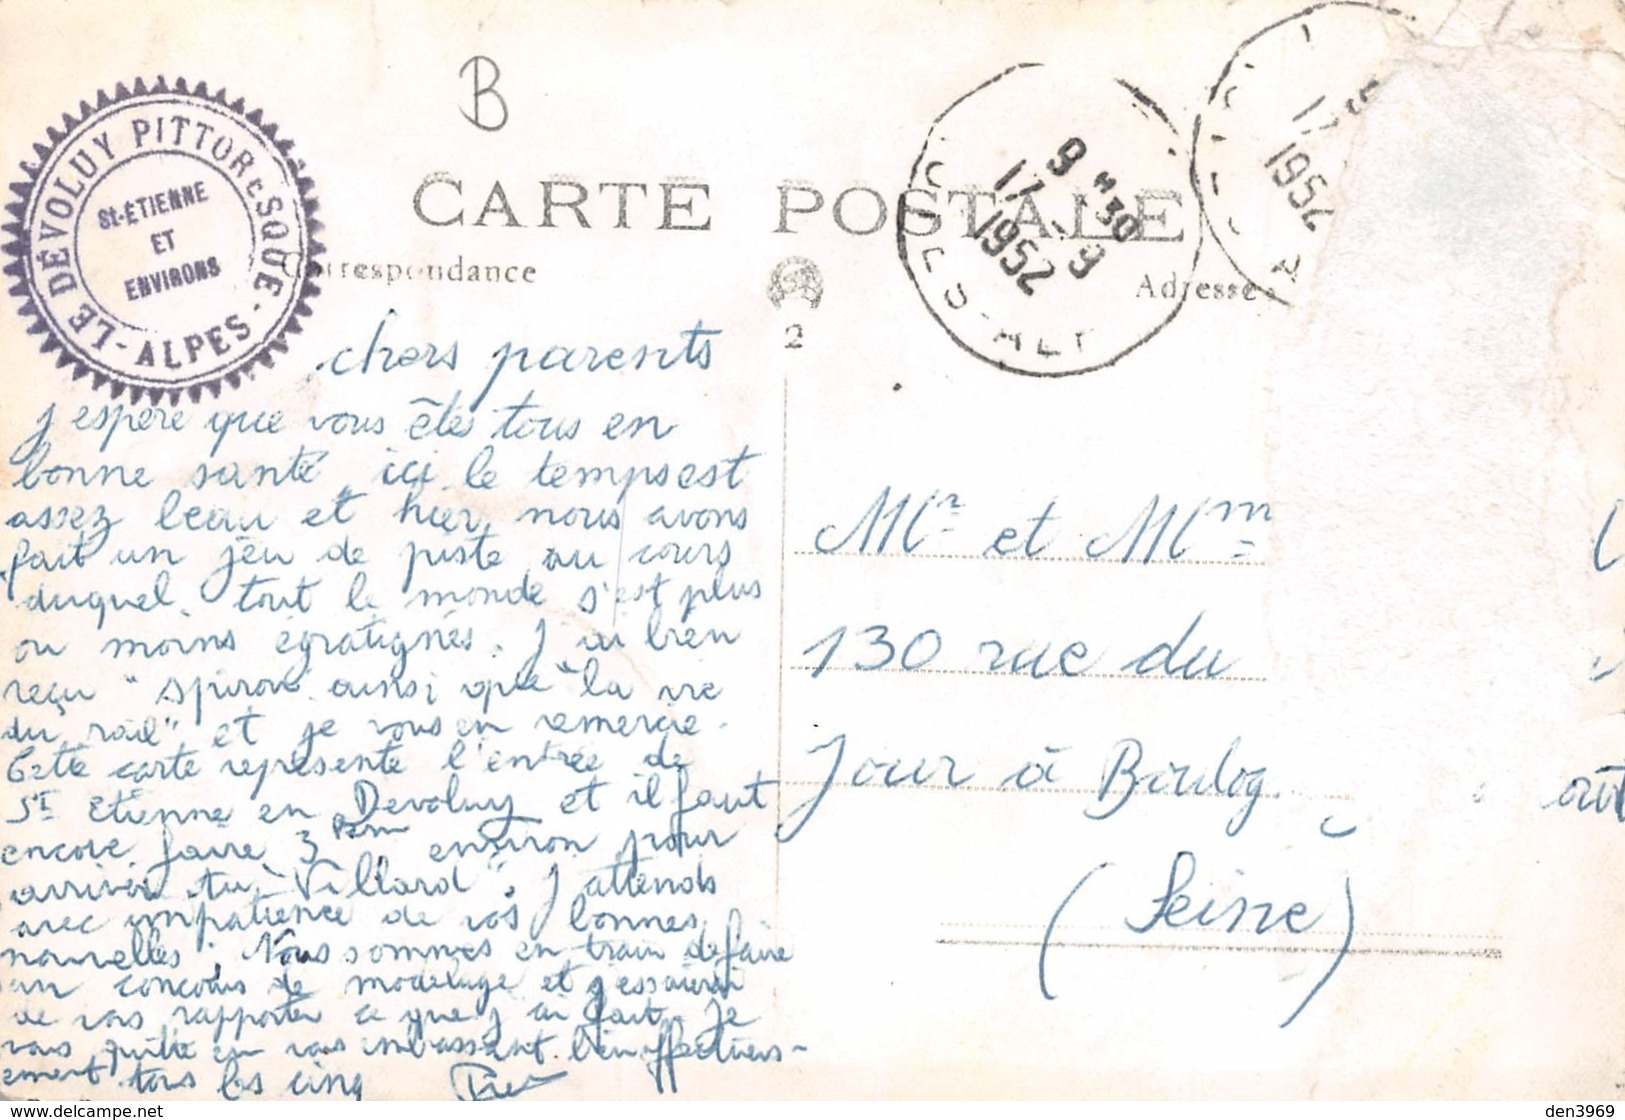 B
LE DÉVOLUY PITTORESQUE - ALPES -
St-ÉTIENNE
ET
ENVIRONS
CARTE POSTALE
Correspondance
Adresse
2
9 H 30
17 - 9
1952
17
1952
chers parents
J espère que vous êtes tous en
bonne santé, ici le temps est
assez beau et hier, nous avons
fait un jeu de piste au cours
duquel tout le monde s'est plus
ou moins égratignés. J ai bien
reçu "Spirou" ainsi que "la vie
du rail" et je vous en remercie.
Cette carte représente l'entrée de
St Etienne en Devoluy et il faut
encore faire 3 km environ pour
arriver au "Villard". J attends
avec impatience de vos bonnes
nouvelles. Nous sommes en train de faire
un concours de modelage et j essaierai
de vous rapporter ce que j ai fait. Je
vous quitte en vous embrassant bien affectueus-
ement tous les cinq
Mr et Mm
130 rue du
Jour à Boulog
(Seine)
den3969